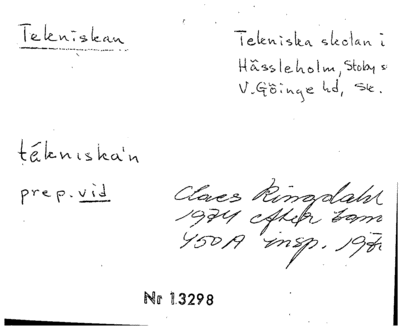 Tekniskan
Tekniska skolan i
Hässleholm, Stoby s
V. Göinge hd, Sk.
tékniska'n
prep. vid
Claes Ringdahl
1974 efter
450A insp. 197
Nr 13298